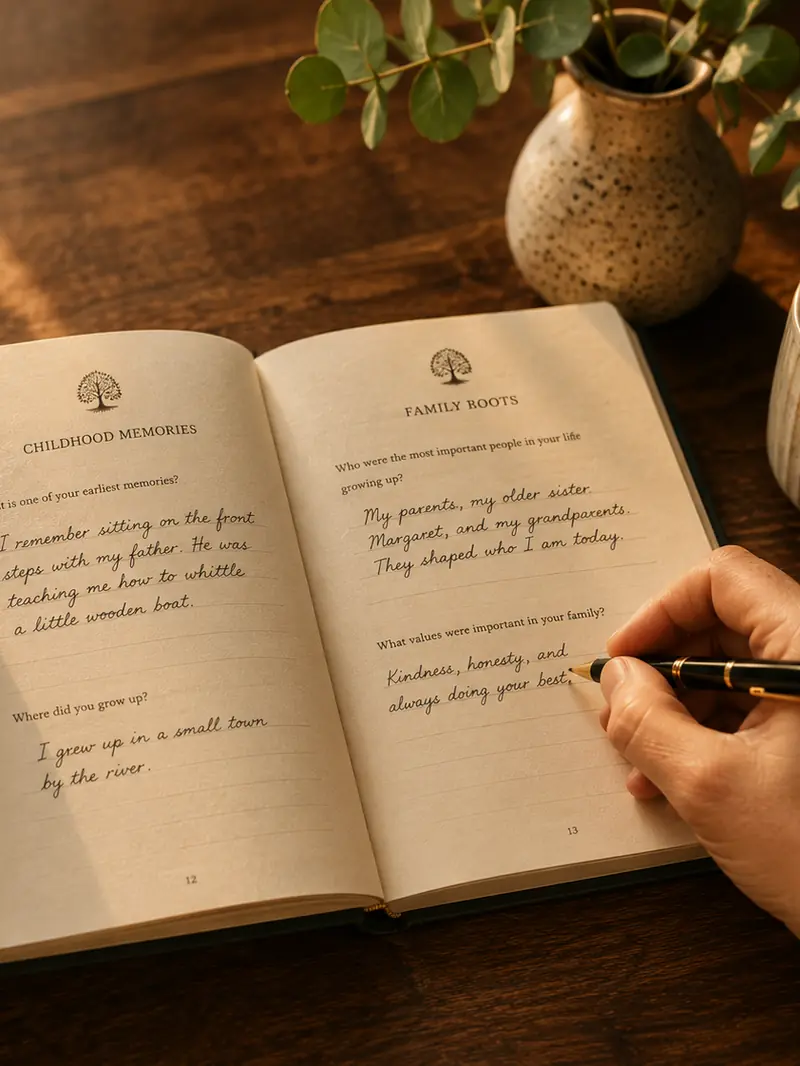 CHILDHOOD MEMORIES
is one of your earliest memories?
I remember sitting on the front
steps with my father. He was
teaching me how to whittle
a little wooden boat.
Where did you grow up?
I grew up in a small town
by the river.
12
FAMILY ROOTS
Who were the most important people in your life
growing up?
My parents, my older sister
Margaret, and my grandparents.
They shaped who I am today.
What values were important in your family?
Kindness, honesty, and
always doing your best.
13